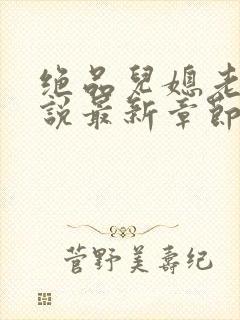 绝品兒媳老
說最新章節
菅野美壽纪